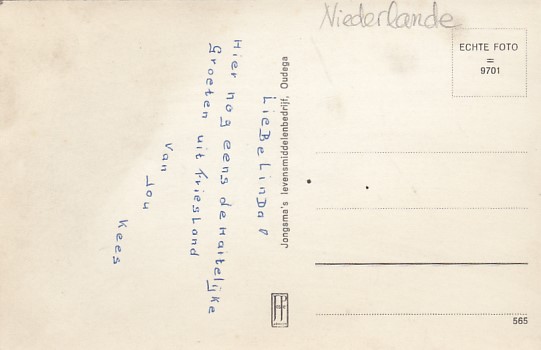 Niederlande
ECHTE FOTO
=
9701
LieBe LinDa!
Hier nog eens de Haitelijke
Groeten uit Friesland
van Jou
Kees
Jongsma's levensmiddelenbedrijf, Oudega
565